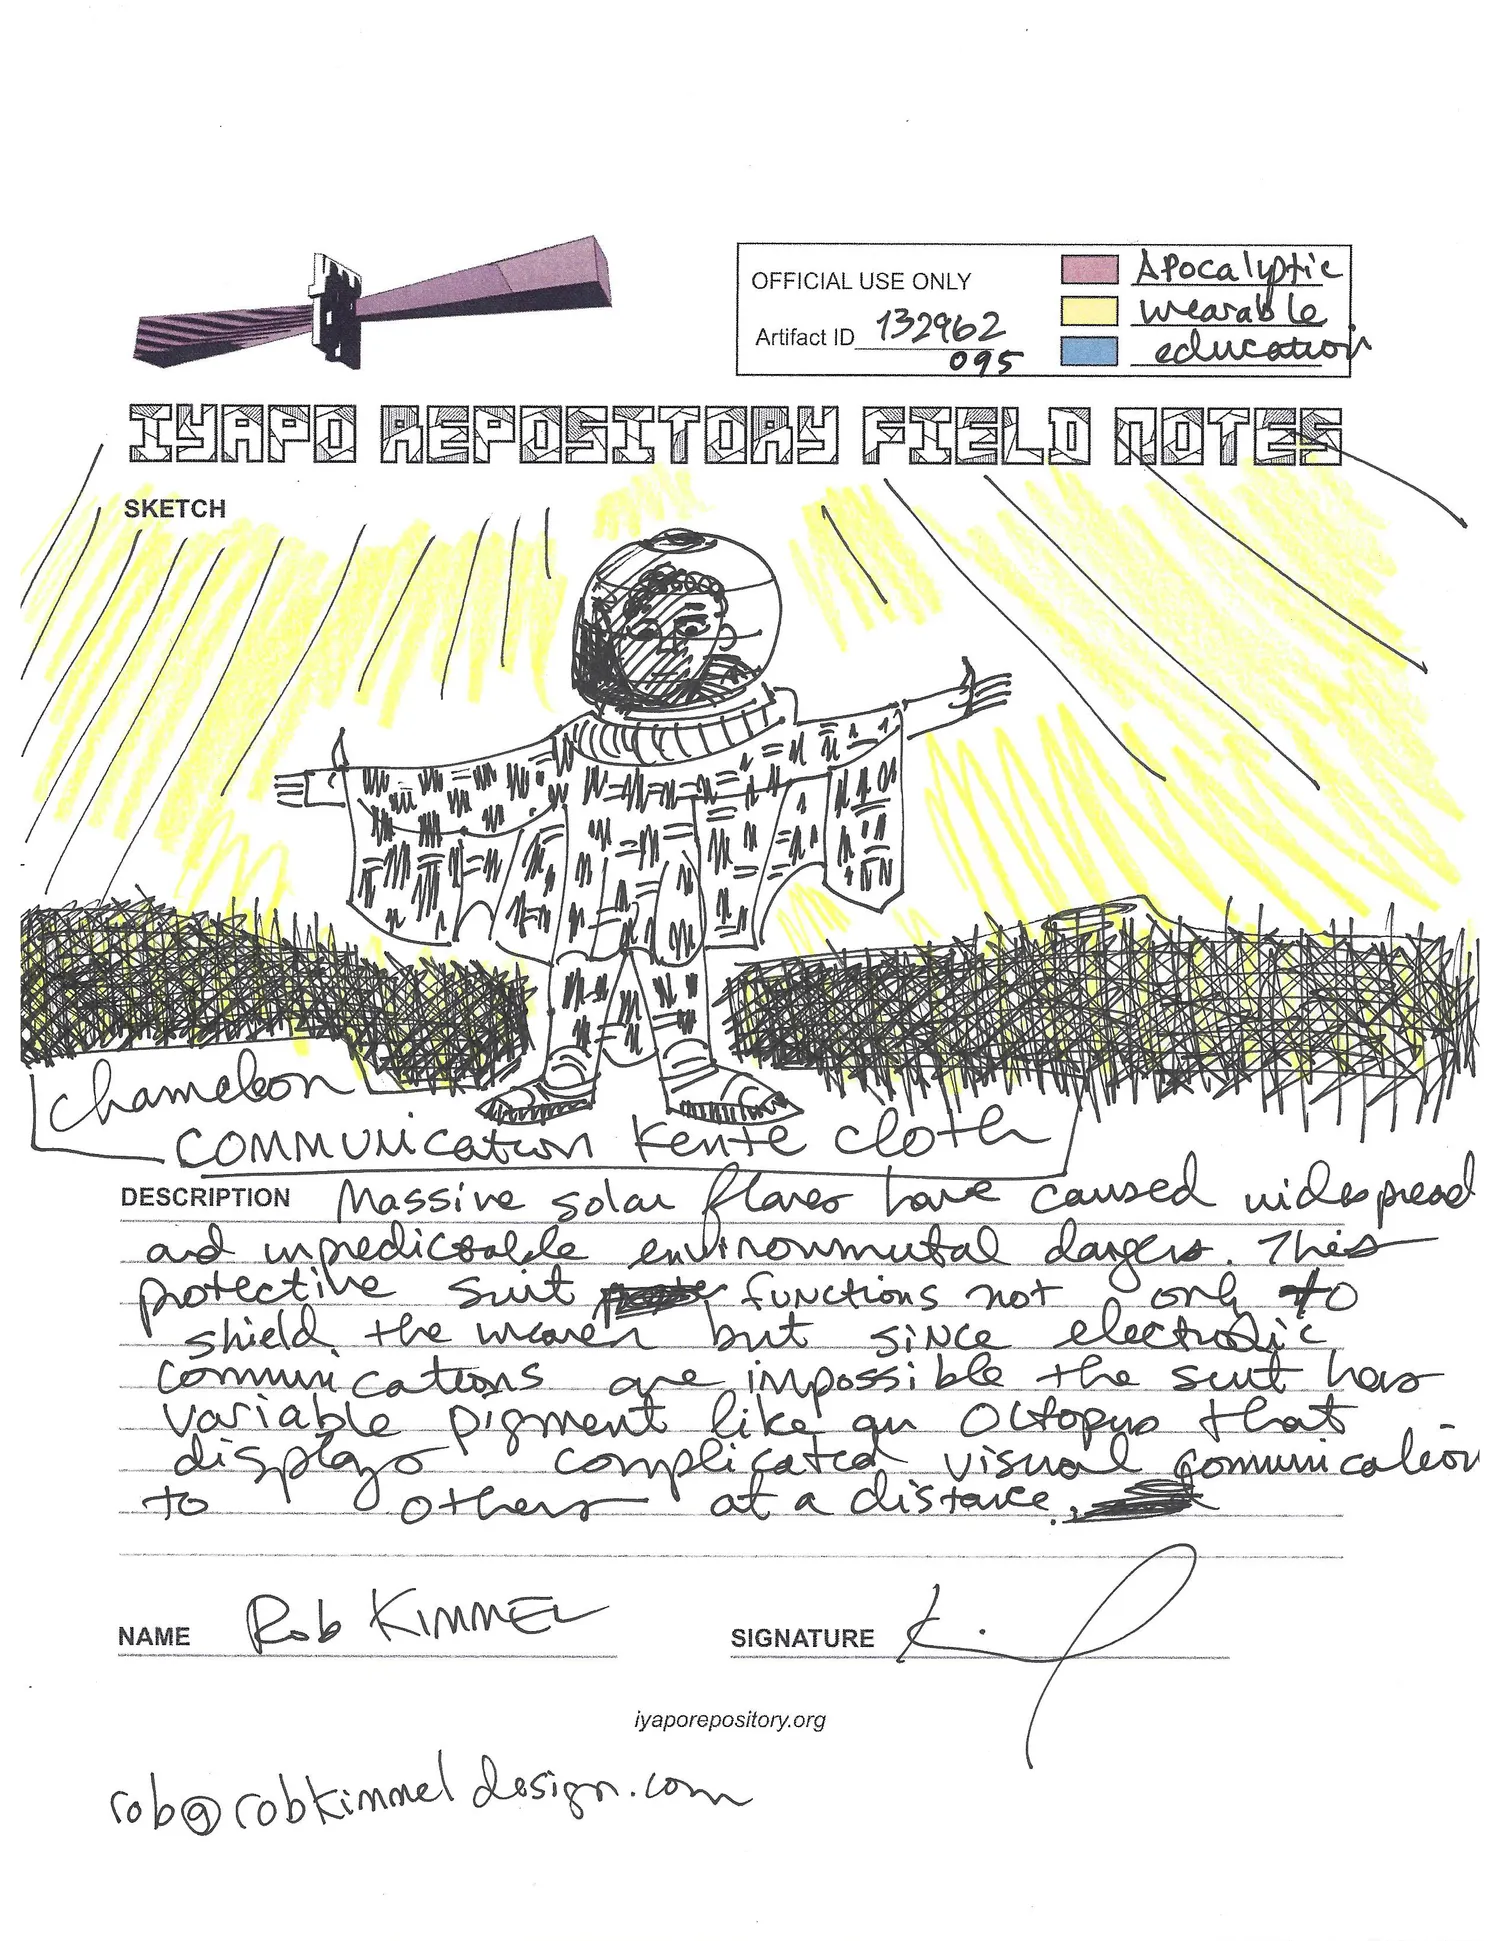 OFFICIAL USE ONLY
Artifact ID 132962
095
Apocalyptic
wearable
education
IYAPO REPOSITORY FIELD NOTES
SKETCH
Chameleon
Communication Kente cloth
DESCRIPTION Massive solar flares have caused widespread
and unpredictable environmental dangers. This
protective suit functions not only to
shield the wearer but since electronic
communications are impossible the suit has
variable pigment like an Octopus that
displays complicated visual communication
to others at a distance.
NAME Rob KIMMEL
SIGNATURE
iyaporepository.org
rob@robkimmeldesign.com